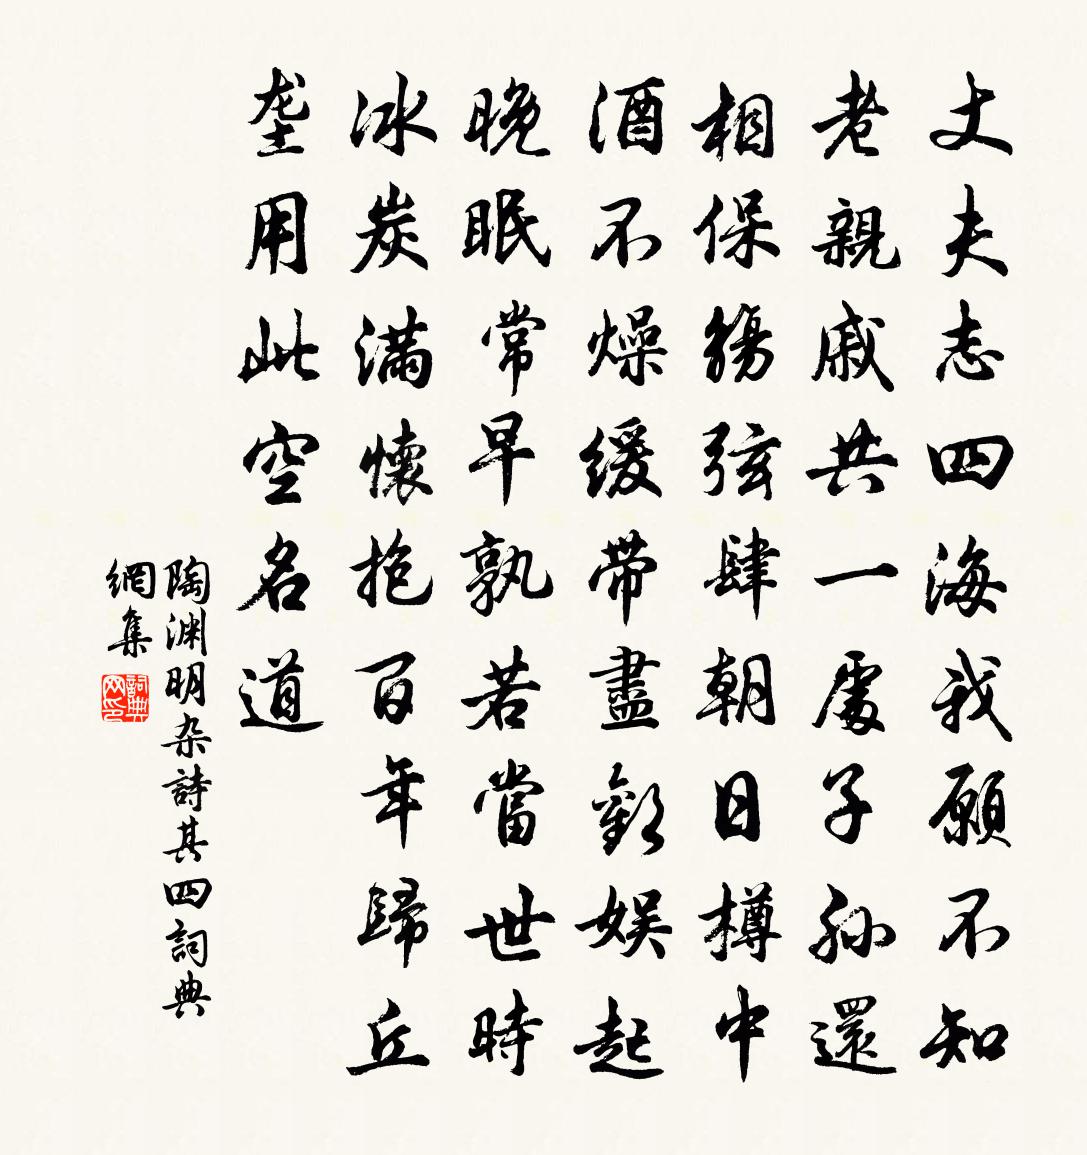 丈夫志四海我願不知
老親戚共一處子孫還
相保觴弦肆朝日樽中
酒不燥緩帶盡歡娛起
晚眠常早孰若當世時
冰炭滿懷抱百年歸丘
垄用此空名道
陶渊明杂詩其四詞典
網集
詞典网印